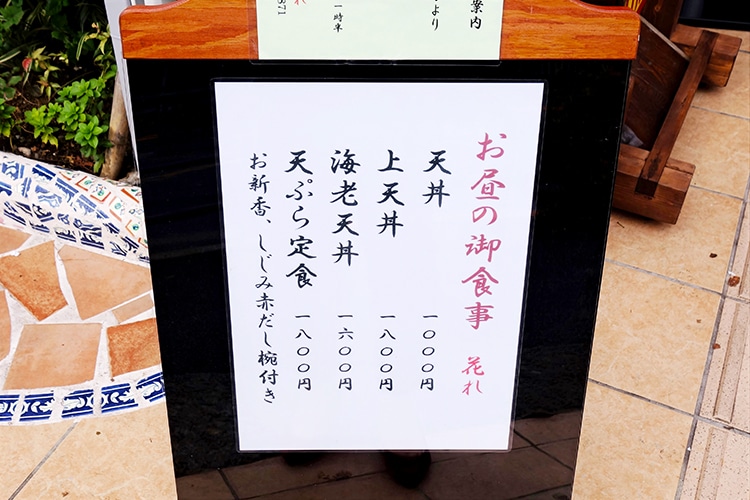 案内
より
一時車
れ
871
お昼の御食事 花れ
天丼 一〇〇〇円
上天丼 一八〇〇円
海老天丼 一六〇〇円
天ぷら定食 一八〇〇円
お新香、しじみ赤だし椀付き